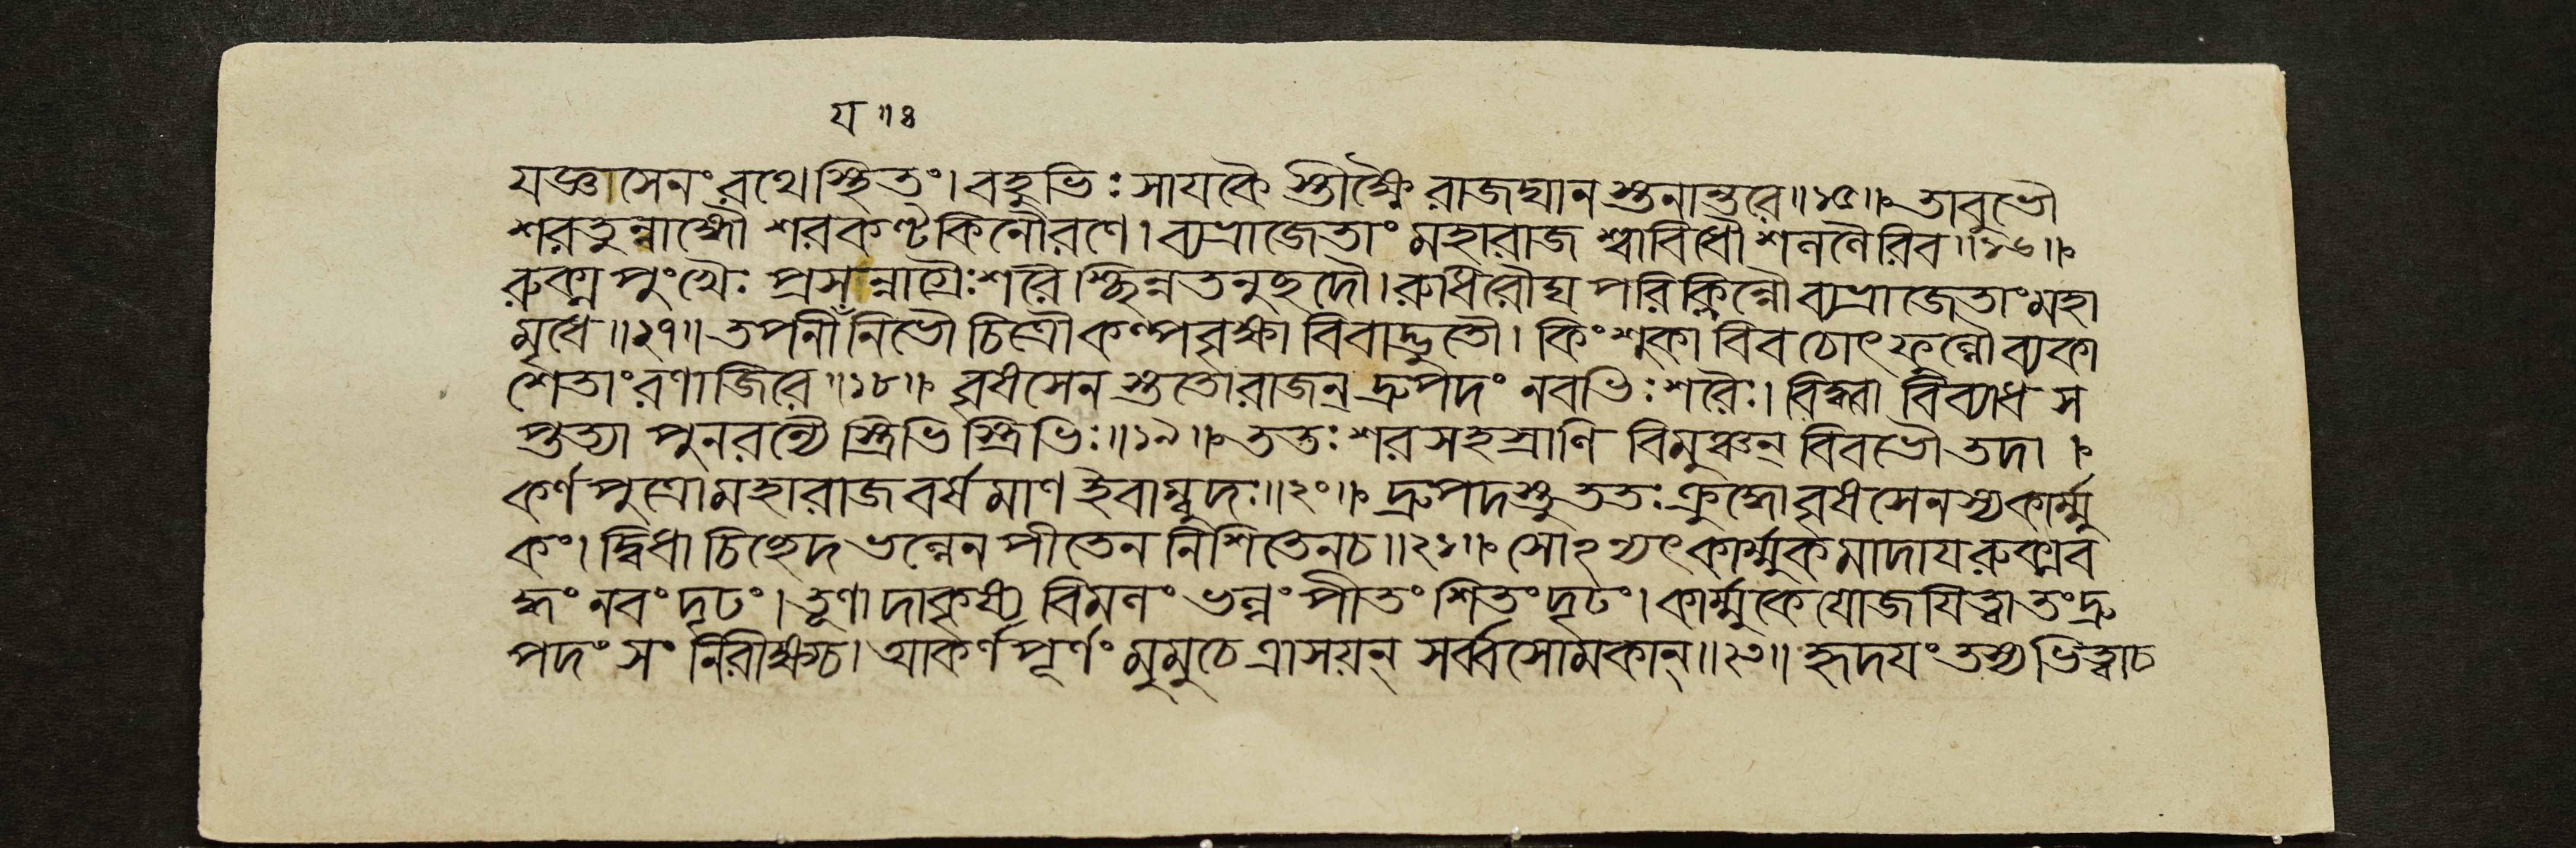 য ॥ ৪
যজ্ঞসেনং রথেস্থিতং। বহুভিঃ সাযকৈ স্তীক্ষ্ণৈ রাজঘান স্তনান্তরে॥১৫॥ তাবুভৌ
শরতুন্নাঙ্গৌ শরকণ্টকিনৌরণে। ব্যভ্রাজেতাং মহারাজ শ্বাবিধৌ শললৈরিব॥১৬॥
রুক্ম পুংখৈঃ প্রসন্নাগ্রৈঃ শরৈ স্ছিন্ন তনুছদৌ। রুধিরৌঘ পরিক্লিন্নৌ ব্যভ্রাজেতাং মহা
মৃধে॥১৭॥ তপনীঁনিভৌ চিত্রৌ কল্পবৃক্ষা বিবাদ্ভুতৌ। কিংশুকা বিব চোৎফুল্লৌ ব্যকা
শেতাং রণাজিরে॥১৮॥ বৃষসেন স্ততোরাজন্ দ্রুপদং নবভিঃ শরৈঃ। বিদ্ধা বিব্যাধ স
প্তত্যা পুনরন্যৈ স্ত্রিভি স্ত্রিভিঃ॥১৯॥ ততঃ শরসহস্রাণি বিমুঞ্চন্ বিবভৌ তদা।
কর্ণপুত্রোমহারাজ বর্ষমাণ ইবাম্বুদঃ॥২০॥ দ্রুপদস্তু ততঃ ক্রুদ্ধো বৃষসেনস্য কার্ম্মু
কং। দ্বিধা চিছেদ ভল্লেন পীতেন নিশিতেনচ॥২১॥ সোঽন্যৎ কার্ম্মুকমাদায রুক্মব
দ্ধং নবং দৃঢং। তূণাদাকৃষ্য বিমলং ভল্লং পীতং শিতং দৃঢং। কার্ম্মুকে যোজযিত্বা তং দ্রু
পদং সং নিরীক্ষ্যচ। আকর্ণপূর্ণং মুমুচে ত্রাসয়ন্ সর্ব্বসোমকান্॥২৩॥ হৃদযং তস্য ভিত্ত্বাচ